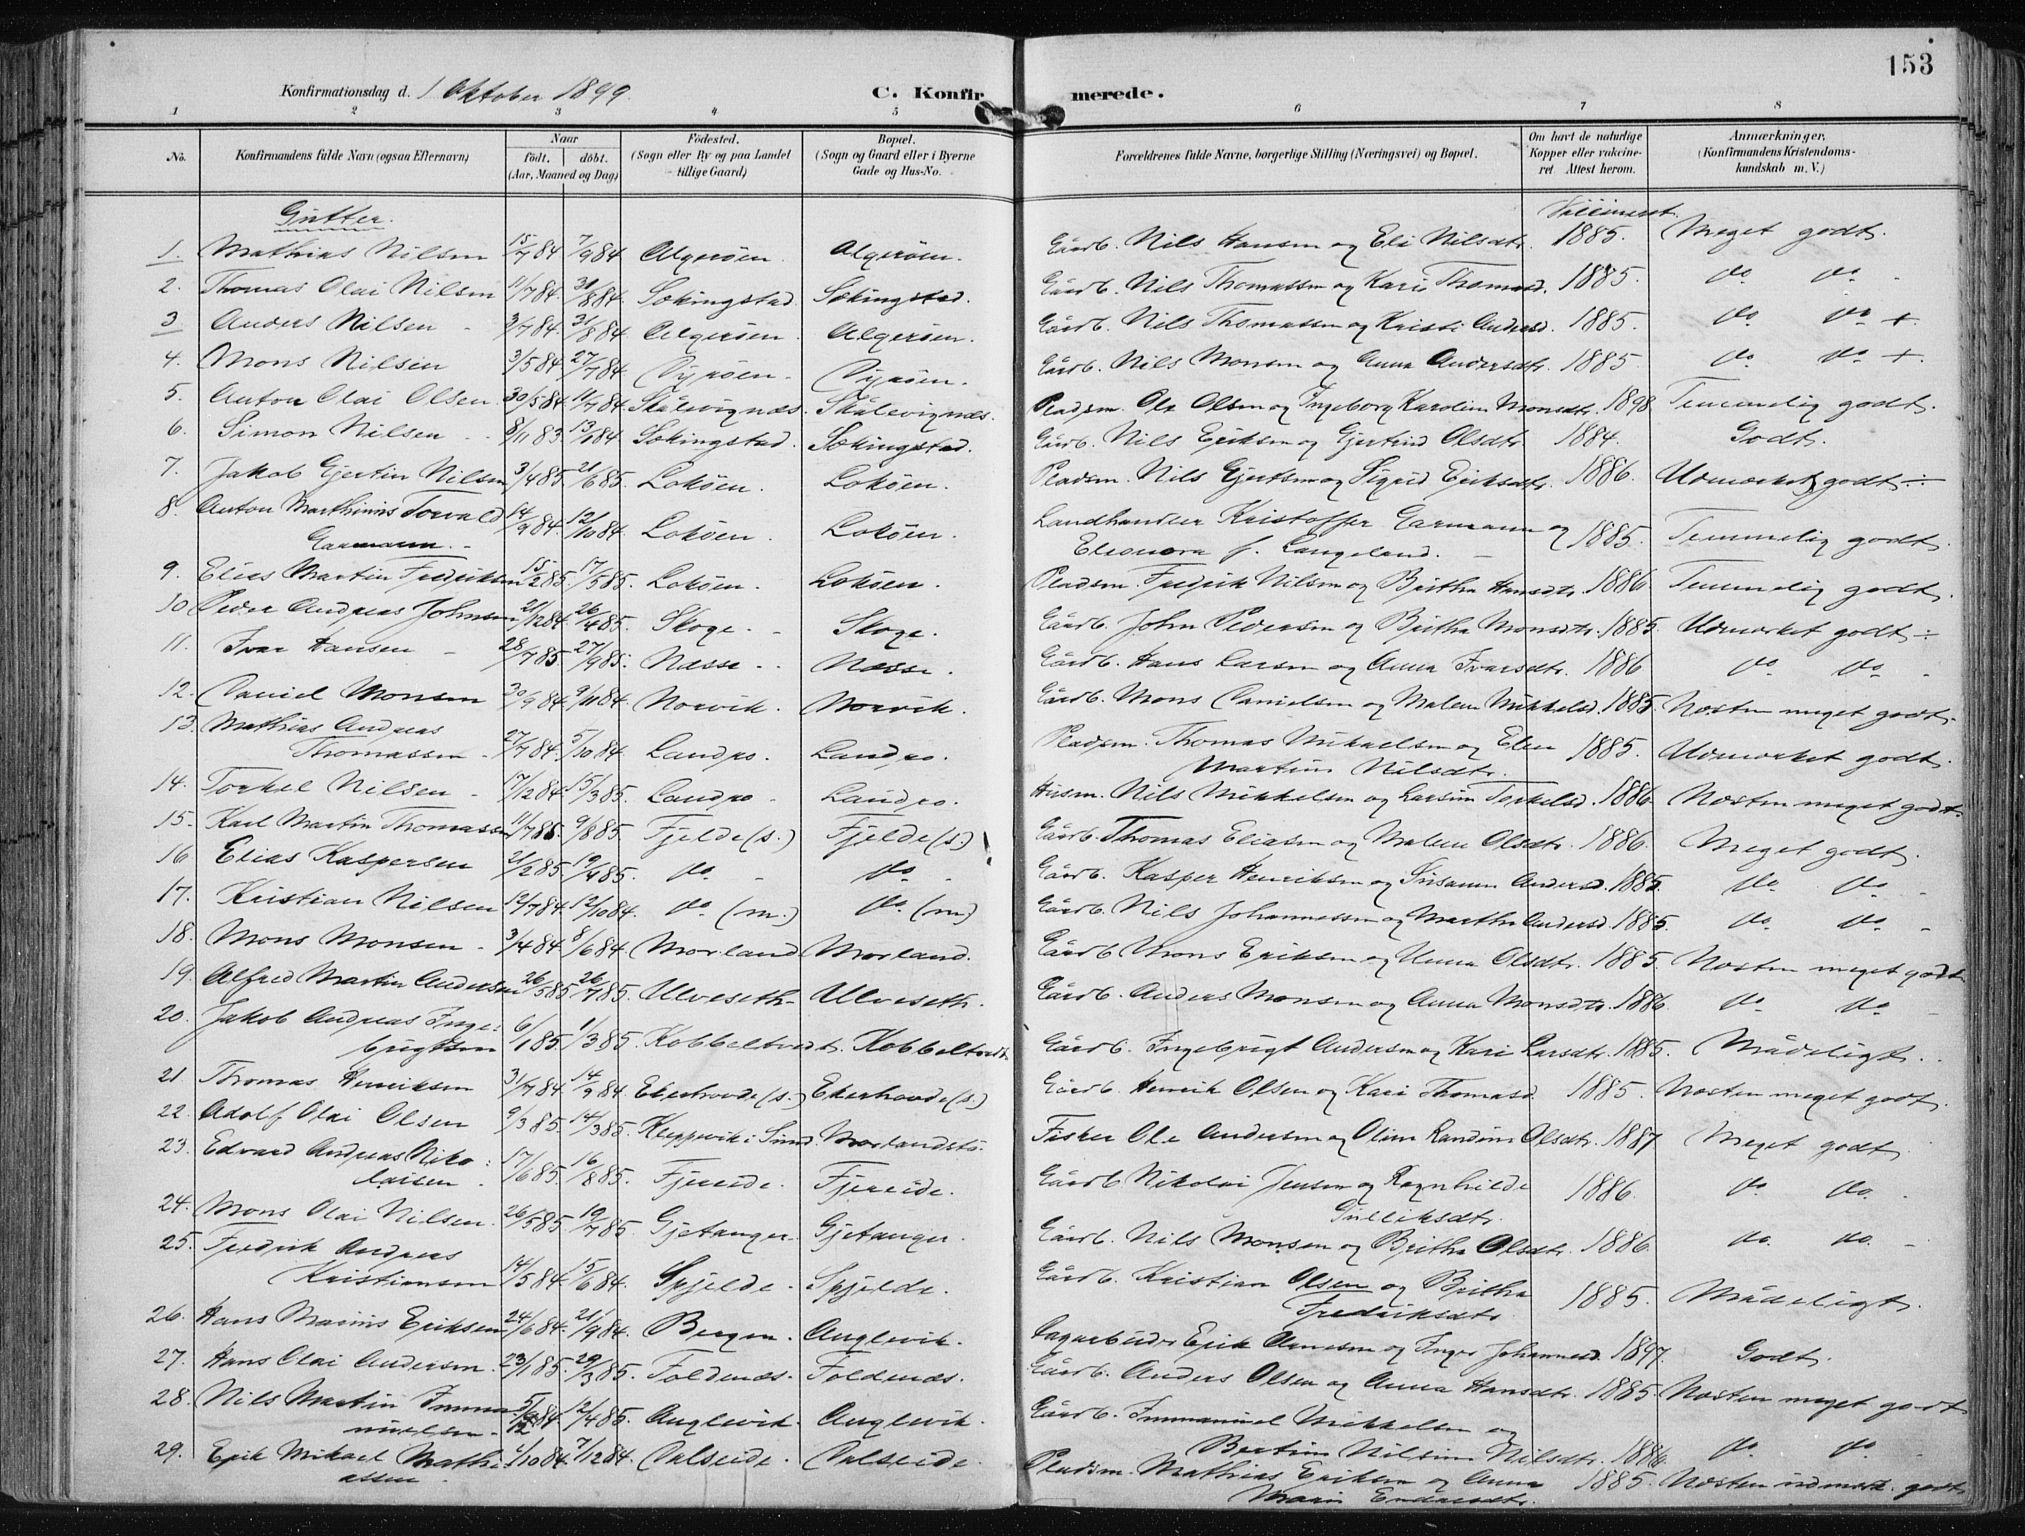 153
Konfirmationsdag d. 1 Oktober 1899. C. Konfirmerede.
1 2 3 4 5 6 7 8
No. Konfirmandens fulde Navn (ogsaa Efternavn) Naar født. døbt. (Aar, Maaned og Dag) Fødested. (Sogn eller By og paa Landet tillige Gaard) Bopæl. (Sogn og Gaard eller i Byerne Gade og Hus-No. Forældrenes fulde Navne, borgerlige Stilling (Næringsvei) og Bopæl. Om havt de naturlige Kopper eller vakcineret. Attest herom. Anmærkninger, (Konfirmandens Kristendomskundskab m. V.)
Gutter.
1. Mathias Nilsen 15/7 84 7/9 84 Algerøen. Algerøen. Gårdb. Nils Hansen og Eli Nilsdtr. 1885. Meget godt.
2. Thomas Olai Nilsen 11/7 84. 31/8 84. Sækingstad. Sækingstad. Gårdb. Nils Thomassen og Kari Thomasd. 1885 do do
3 Anders Nilsen 3/7 84. 31/8 84 Algerøen. Algerøen. Gårdb. Nils Thomassen og Kristi Andersd. 1885. do do +
4. Mons Nilsen 3/5 84. 27/7 84 Dyrøen. Dyrøen. Gårdb. Nils Monsen og Anna Andersdtr. 1885 do do +
5. Anton Olai Olsen 30/5 84 11/7 84 Skålevignæs. Skålevignæs. Pladsm. Ole Olsen og Ingeborg Karoline Monsdtr. 1898 Temmelig godt.
6. Simon Nilsen 8/11 83. 13/1 84. Sækingstad. Sækingstad. Gårdb. Nils Eriksen og Gjertrud Olsdtr. 1884. Godt.
7. Jakob Gjertin Nilsen 3/4 85 21/6 85. Lokøen. Lokøen. Pladsm. Nils Gjertsen og Sigrid Eriksdtr. 1886. Udmærket godt
8. Anton Marthinus Torvald Garmann. 14/9 84. 12/10 84. Lokøen. Lokøen. Landhandler Kristoffer Garmann og Eleonora f. Langeland. 1885. Temmelig godt.
9. Elias Martin Fredriksen 15/2 85. 17/5 85. Lokøen. Lokøen. Pladsm. Fredrik Nilsen og Britha Hansdtr. 1886. Temmelig godt.
10. Peder Andreas Johnsen 21/12 84. 26/4 85. Skoge. Skoge. Gårdb. John Pedersen og Britha Monsdtr. 1885. Udmærket godt
11. Ivar Hansen 28/7 85. 27/9 85. Næsse. Næsse. Gårdb. Hans Larsen og Anna Ivarsdtr. 1886 do do
12. Daniel Monsen 30/9 84. 9/11 84. Norvik. Norvik. Gårdb. Mons Danielsen og Malene Mikkelsd. 1885 Næsten meget godt.
13. Mathias Andreas Thomassen 27/7 84. 5/10 84. Landro. Landro. Pladsm. Thomas Mikaelsen og Elen Martine Nilsdtr. 1885. Udmærket godt.
14. Torkel Nilsen 17/12 84. 15/3 85. Landro. Landro. Husm. Nils Mikkelsen og Larsine Torkelsd. 1886. Næsten meget godt.
15. Karl Martin Thomassen 11/7 85. 9/8 85. Fjelde (s.) Fjelde (s.) Gårdb. Thomas Eliasen og Malene Olsdtr. 1886. Meget godt.
16 Elias Kaspersen 21/2 85. 19/4 85. do. do. Gårdb. Kasper Henriksen og Susanne Andersd. 1885. do. do
17. Kristian Nilsen 19/7 84. 12/10 84. do (m.) do. (m) Gårdb. Nils Johannessen og Martha Andersd. 1885. do. do.
18. Mons Monsen 3/4 84. 8/6 84. Morland Morland. Gårdb Mons Eriksen og Anna Olsdtr. 1885. Næsten meget godt
19. Alfred Martin Andersen 26/5 85 26/7 85. Ulveseth. Ulveseth. Gårdb. Anders Monsen og Anna Monsdtr. 1886. do do
20. Jakob Andreas Ingebrigtsen 6/1 85. 1/3 85. Kobbeltvedt. Kobbeltvedt. Gårdb. Ingebrigt Andersen og Kari Larsdtr. 1885. Mådeligt.
21 Thomas Henriksen 31/7 84. 14/9 84. Ekerhovde (s.) Ekerhovde (s.) Gårdb. Henrik Olsen og Kari Thomasd. 1885. Næsten meget godt.
22. Adolf Olai Olsen 9/3 85. 14/3 85. Kleppevik i Sund. Morlandstø. Fisker Ole Andersen og Oline Randine Olsdtr. 1887 Meget godt.
23. Edvard Andreas Nikolaisen 17/6 85. 16/8 85. Fjereide. Fjereide. Gårdb. Nikolai Jensen og Ragnhilde Gulliksdtr. 1886. do do.
24. Mons Olai Nilsen. 26/5 85. 19/7 85. Gjetanger. Gjetanger. Gårdb. Nils Monsen og Britha Olsdtr. 1886. do. do.
25. Fredrik Andreas Kristiansen 14/5 84. 15/6 84. Spjelde. Spjelde. Gårdb. Kristian Olsen og Britha Fredriksdtr. 1885. Mådeligt.
26. Hans Marius Eriksen 24/6 84. 21/9 84. Bergen. Anglevik. Dagarbeider Erik Arnesen og Inger Johannesd. 1897. Godt.
27. Hans Olai Andersen. 23/1 85. 29/3 85. Foldenæs. Foldenæs. Gårdb. Anders Olsen og Anna Hansdtr. 1885. Næsten meget godt
28. Nils Martin Immanuelsen. 5/12 84 12/4 85. Anglevik. Anglevik. Gårdb. Immanuel Mikkelsen og Bertine Nilsine Nilsdtr. 1886. do do
29. Erik Mikael Mathiassen. 9/10 84. 7/12 84. Dalseide. Dalseide. Pladsm. Mathias Eriksen og Anna Marie Endresdtr. 1885. Næsten udmærk. godt